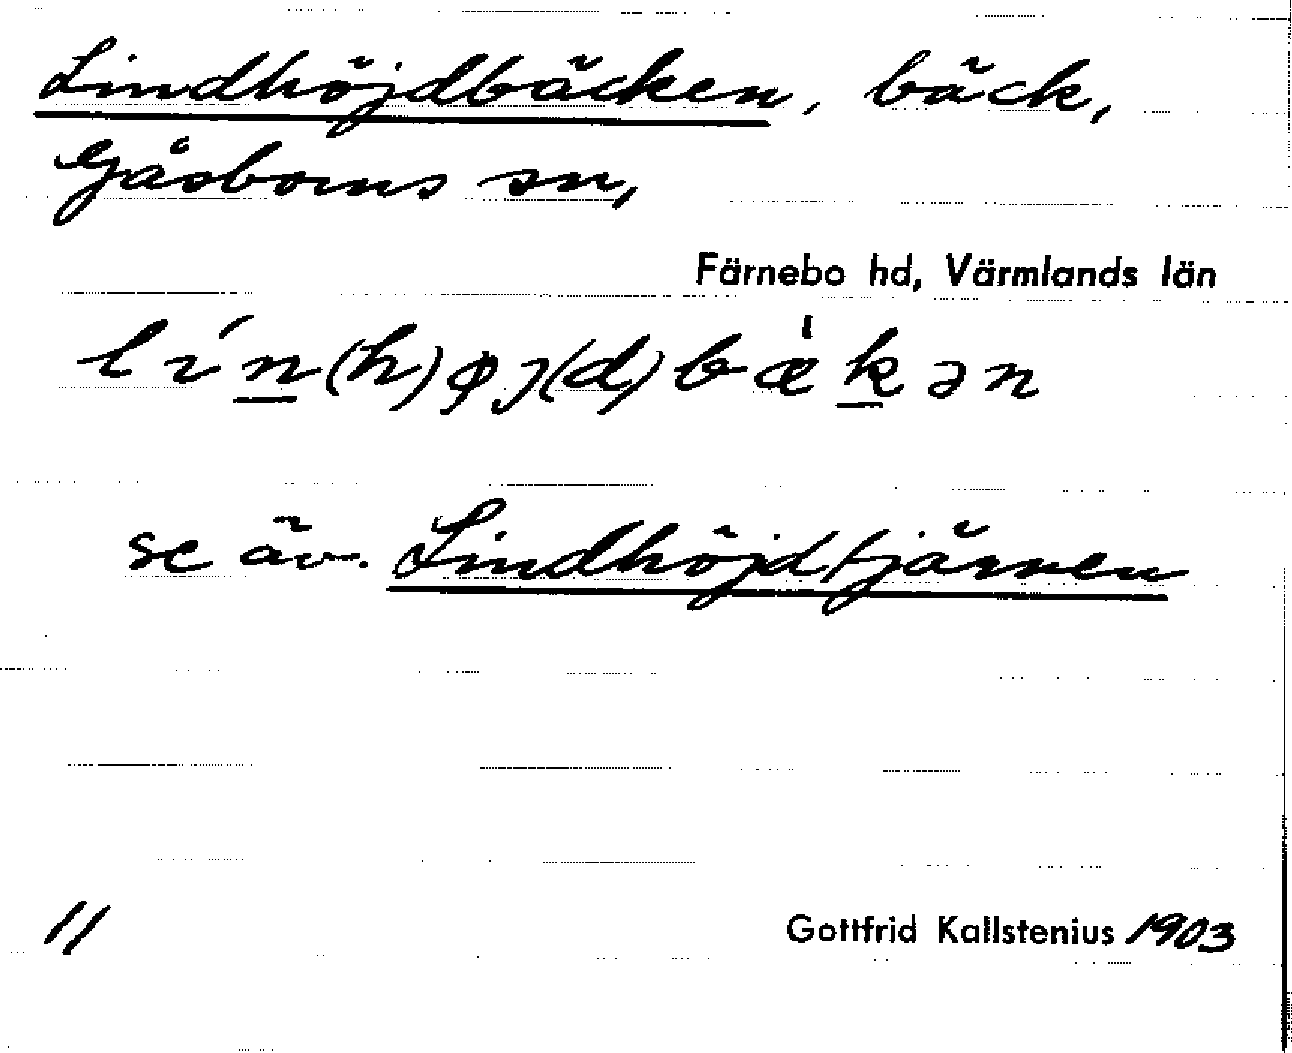 Lindhöjdbäcken, bäck,
Gåsborns sn,
Färnebo hd, Värmlands län
lín̲(h)øj(d)bæ̀k̲ən
se äv. Lindhöjdtjärnen
11 Gottfrid Kallstenius 1903